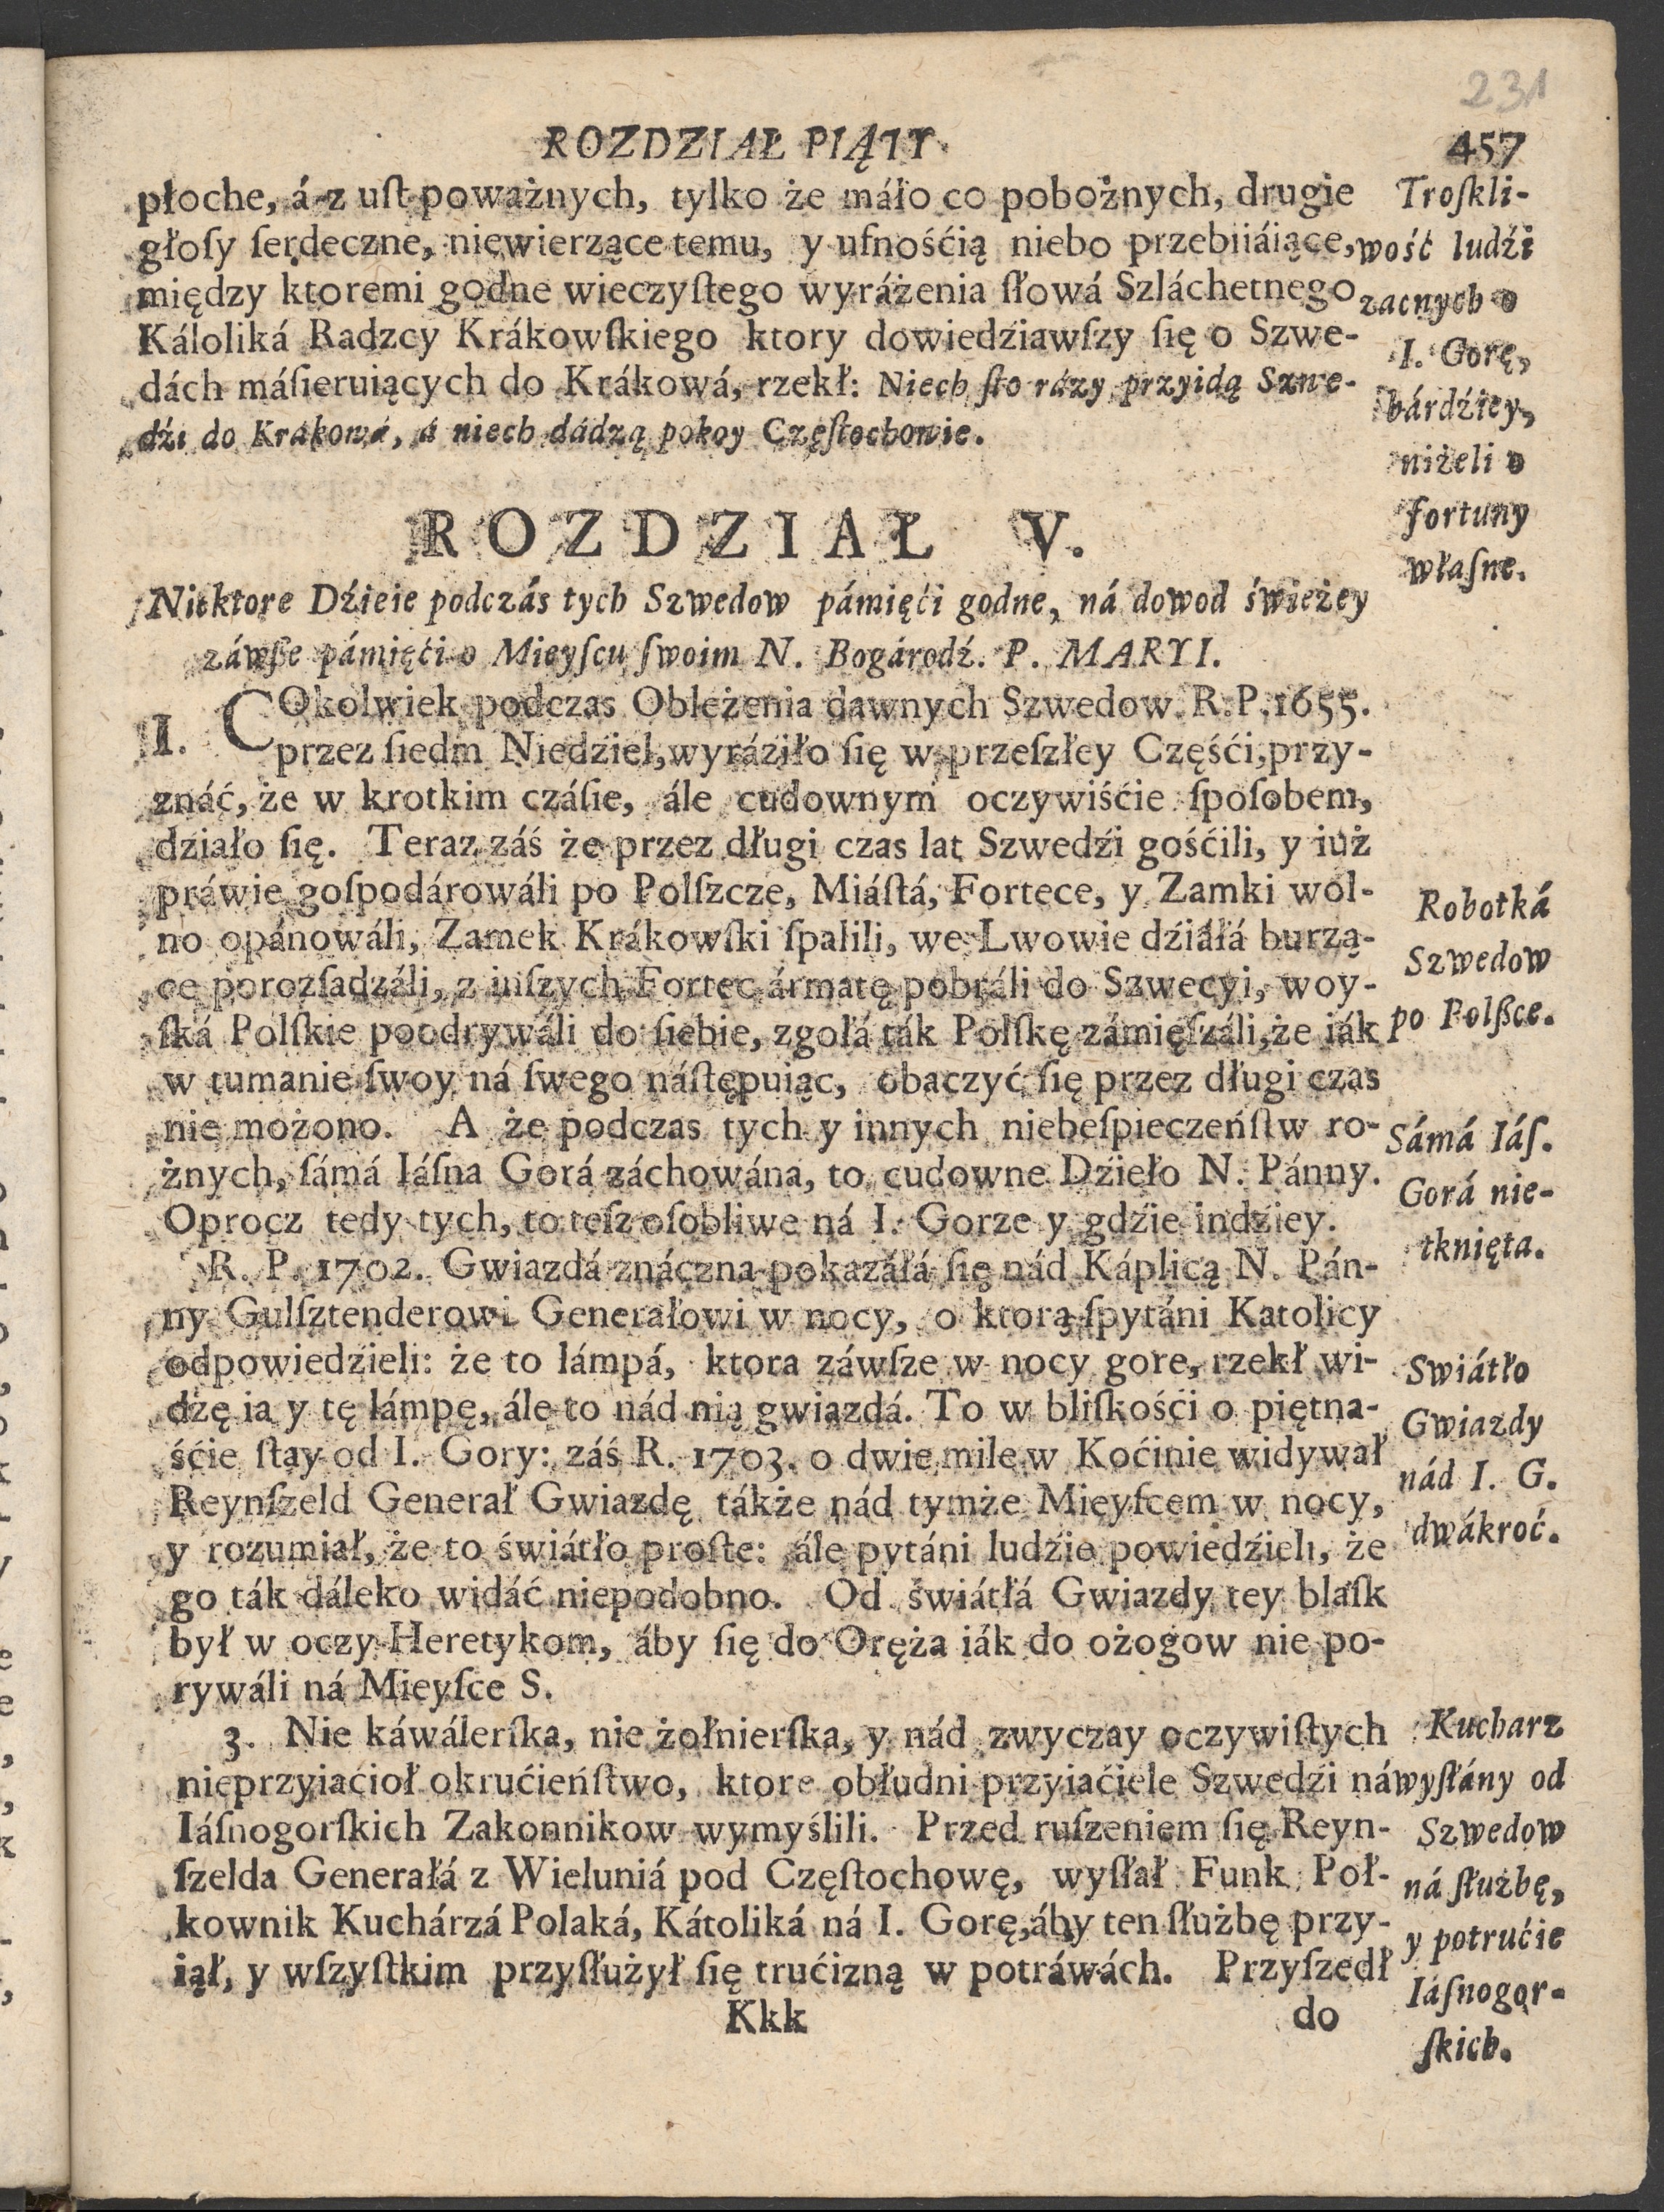 231
ROZDZIAŁ PIĄTY. 457
płoche, á z uſt poważnych, tylko że máło co pobożnych, drugie
głoſy ſerdeczne, niewierzące temu, y ufnośćią niebo przebiiáiące,
między ktoremi godne wieczyſtego wyráżenia ſłowá Szláchetnego
Káloliká Radzcy Krákowſkiego ktory dowiedźiawſzy ſię o Szwe-
dách máſieruiących do Krákowá, rzekł: Niech ſto rázy przyidą Szwe-
dźi do Krakowá, á niech dádzą pokoy Częſtochowie.
Troſkli-
wość ludźi
zacnych o
I. Gorę,
bárdźiey,
niżeli o
fortuny
właſne.
ROZDZIAŁ V.
Niektore Dźieie podczás tych Szwedow pámięći godne, ná dowod świeżey
záwße pámięći o Mieyſcu ſwoim N. Bogárodź. P. MARYI.
I. COkolwiek podczas Oblężenia dawnych Szwedow. R. P. 1655.
przez ſiedm Niedźiel, wyráźiło ſię w przeſzłey Częśći, przy-
znáć, że w krotkim czáſie, ále cudownym oczywiśćie ſpoſobem,
dźiało ſię. Teraz záś że przez długi czas lat Szwedźi gośćili, y iuż
práwie goſpodárowáli po Polſzcze, Miáſtá, Fortece, y Zamki wol-
no opánowáli, Zamek Krákowſki ſpalili, we Lwowie dźiáłá burzą-
ce porozſadzáli, z inſzych Fortec ármatę pobráli do Szwecyi, woy-
ſká Polſkie poodrywáli do ſiebie, zgołá ták Polſkę zámięſzáli, że iák
w tumanie ſwoy ná ſwego náſtępuiąc, obaczyć ſię przez długi czas
nie możono. A że podczas tych y innych niebeſpieczeńſtw ro-
żnych, ſámá Iáſna Gorá záchowána, to cudowne Dzieło N. Pánny.
Oprocz tedy tych, to teſz oſobliwe ná I. Gorze y gdźie indźiey.
Robotká
Szwedow
po Polßce.
Sámá Iáſ.
Gorá nie-
tknięta.
R. P. 1702. Gwiazdá znáczna pokazáłá ſię nád Káplicą N. Pán-
ny Gulſztenderowi Generałowi w nocy, o ktorą ſpytáni Katolicy
odpowiedźieli: że to lámpá, ktora záwſze w nocy gore, rzekł wi-
dzę ia y tę lámpę, ále to nád nią gwiazdá. To w bliſkośći o piętna-
śćie ſtay od I. Gory: záś R. 1703. o dwie mile w Koćinie widywał
Reynſzeld Generał Gwiazdę tákże nád tymże Mieyſcem w nocy,
y rozumiał, że to świátło proſte: ále pytáni ludźie powiedźieli, że
go ták dáleko widáć niepodobno. Od świátłá Gwiazdy tey blaſk
był w oczy Heretykom, áby ſię do Oręża iák do ożogow nie po-
rywáli ná Mieyſce S.
Swiátło
Gwiazdy
nád I. G.
dwákroć.
3. Nie káwálerſka, nie żołnierſka, y nád zwyczay oczywiſtych
nieprzyiaćioł okrućieńſtwo, ktore obłudni przyiaćiele Szwedźi ná
Iáſnogorſkich Zakonnikow wymyślili. Przed ruſzeniem ſię Reyn-
ſzelda Generałá z Wieluniá pod Częſtochowę, wyſłał Funk Poł-
kownik Kuchárzá Polaká, Kátoliká ná I. Gorę, áby ten ſłużbę przy-
iął, y wſzyſtkim przyſłużył ſię trućizną w potráwách. Przyſzedł
Kucharz
wyſłány od
Szwedow
ná ſłużbę,
y potrućie
Iáſnogor-
ſkich.
Kkk do